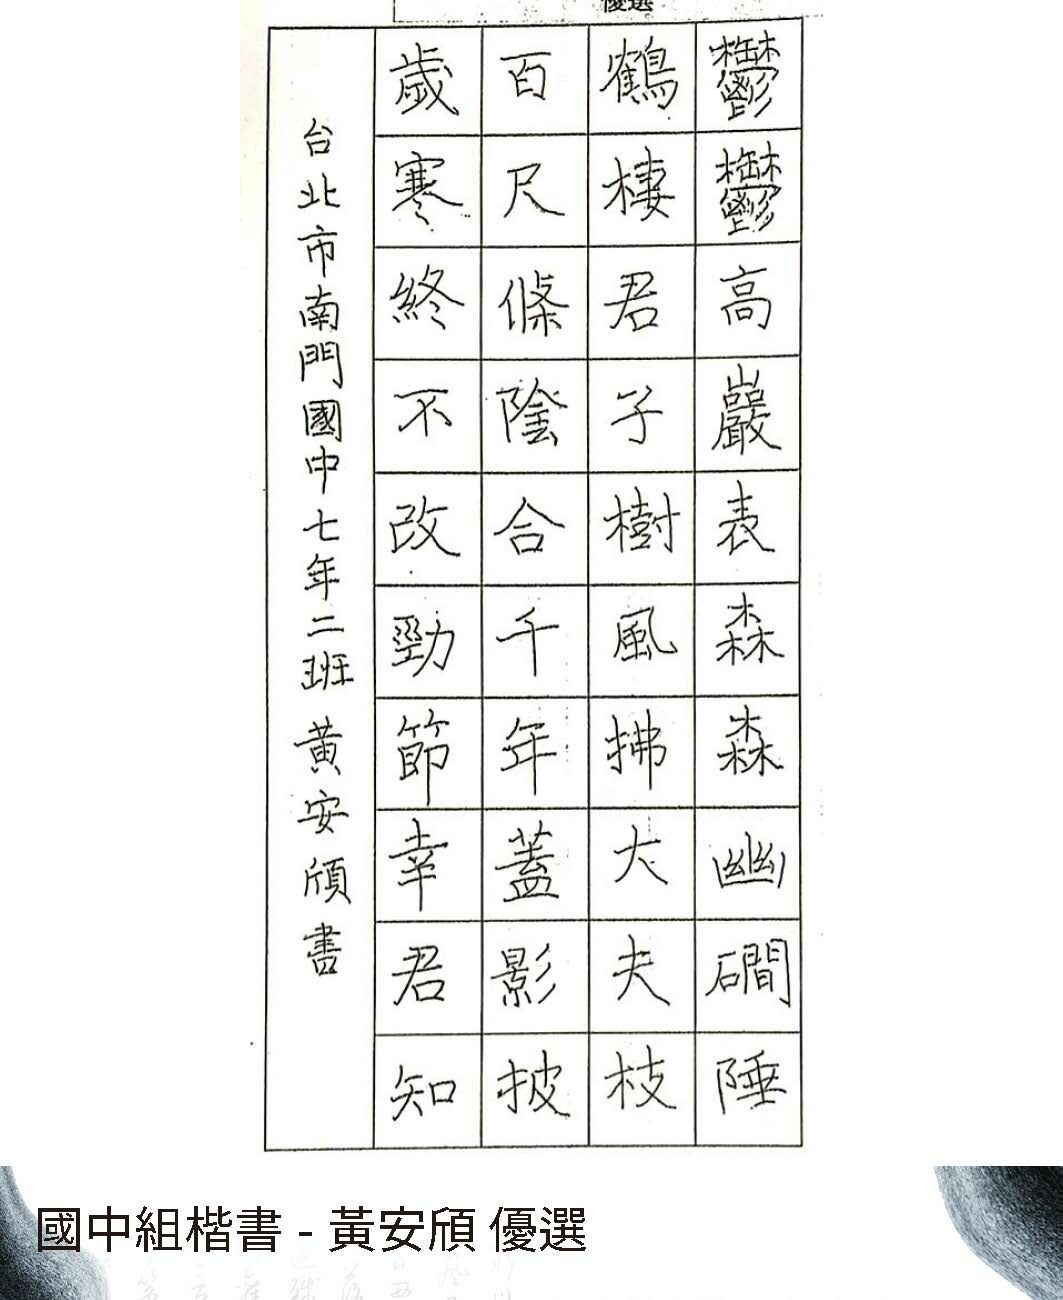 優選
鬱鬱高巖表森森幽磵陲
鶴棲君子樹風拂大夫枝
百尺條陰合千年蓋影披
歲寒終不改勁節幸君知
台北市南門國中七年二班黃安頎書
國中組楷書 - 黃安頎 優選